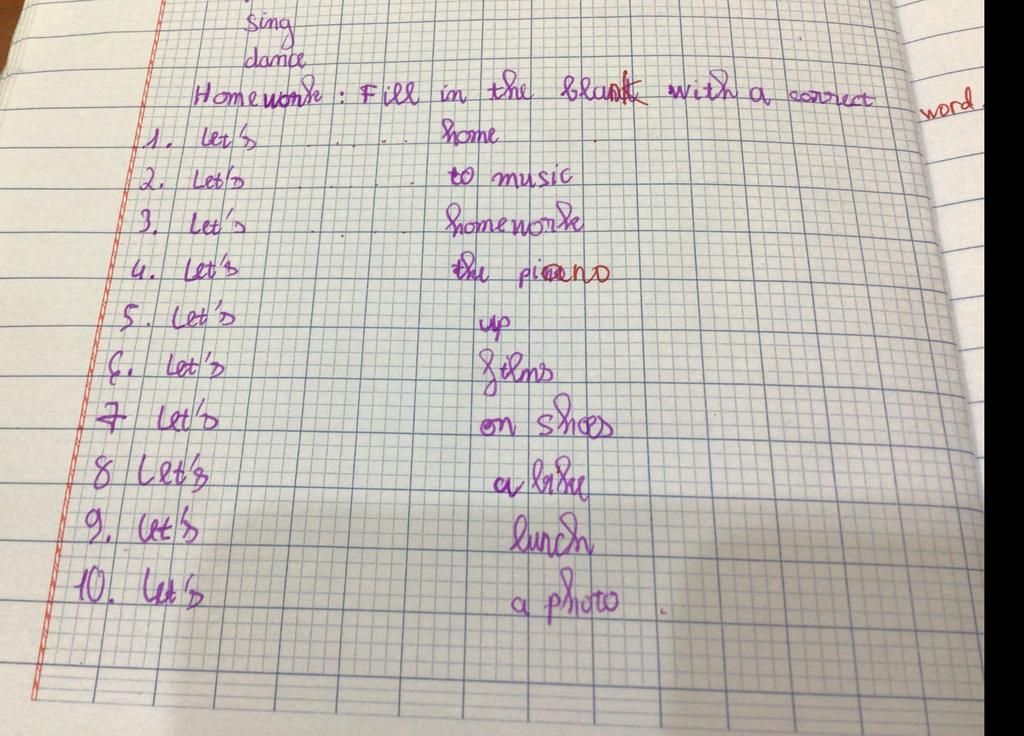 sing
dance
Homework : Fill in the blank with a correct word.
1. Let's . . . . home
2. Let's . . . . to music
3. Let's . . . . homework
4. Let's the piano
5. Let's up
6. Let's films
7 Let's on shoes
8 Let's a bike
9. Let's lunch
10. Let's a photo .